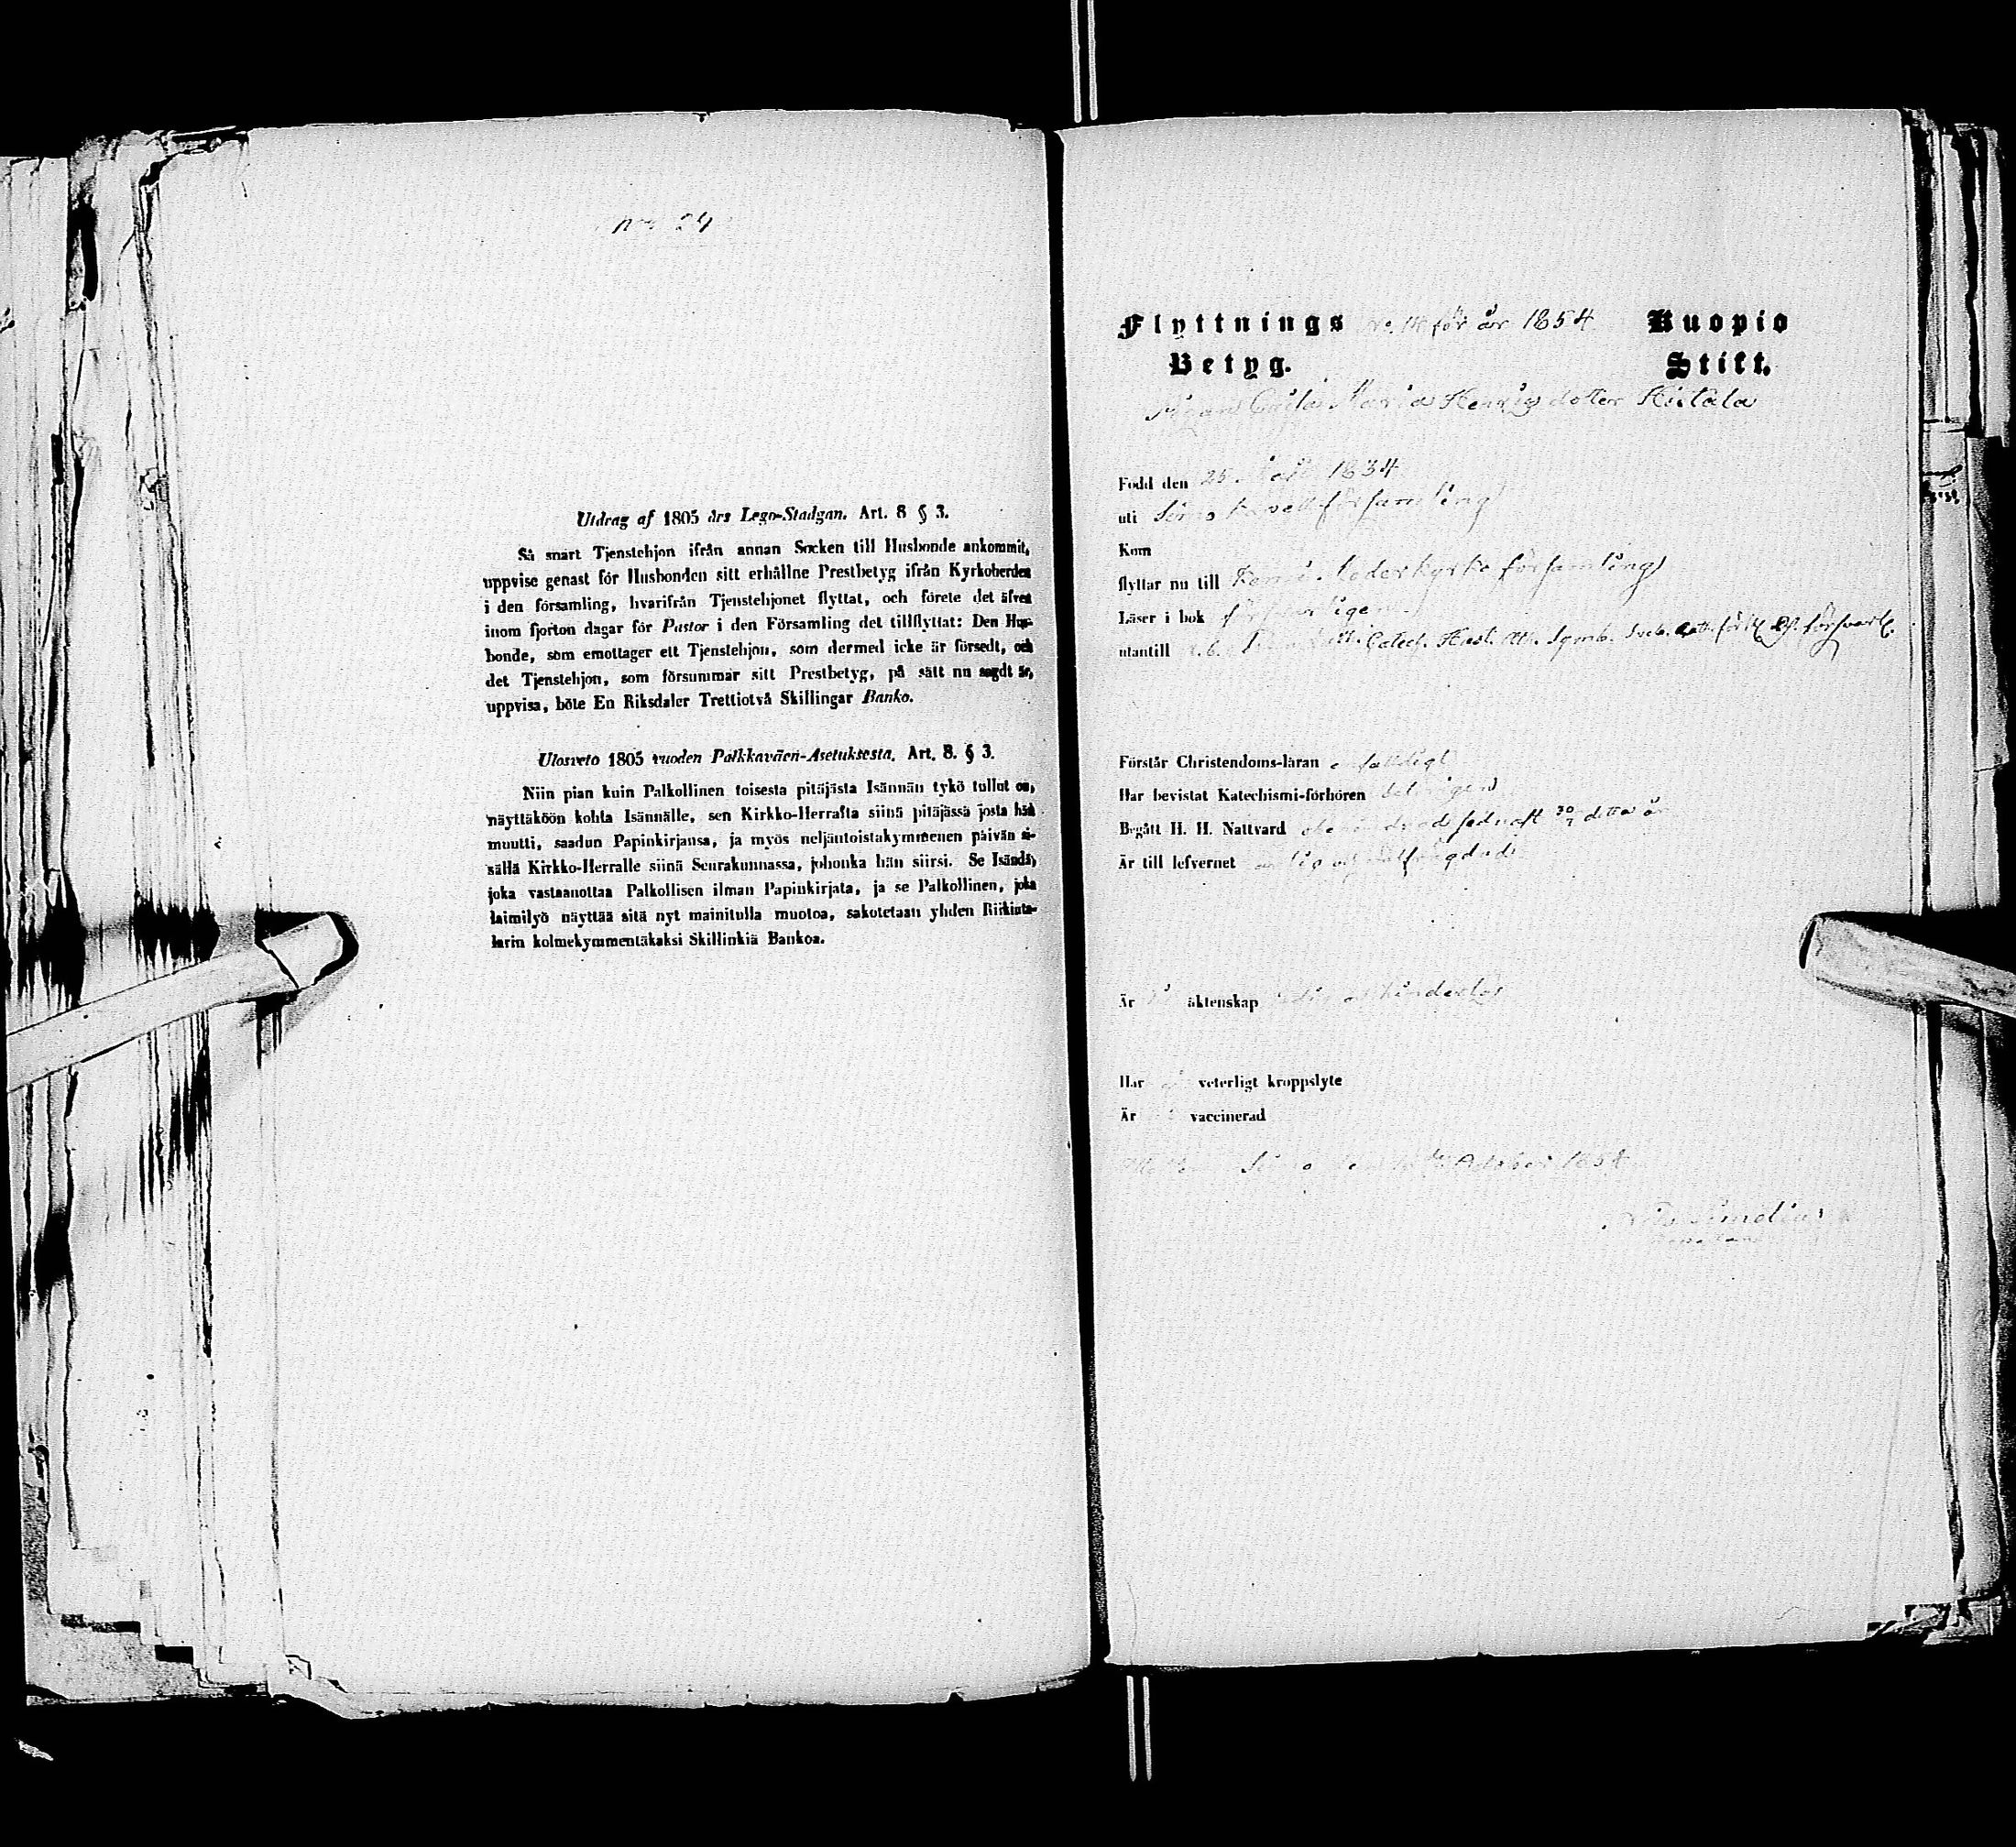 No 24
Utdrag af 1805 års Lego-Stadgan. Art. 8 § 3.
Så snart Tjenstehjon ifrån annan Socken till Husbonde ankommit,
uppvise genast för Husbonden sitt erhållne Prestbetyg ifrån Kyrkoherden
i den församling, hvarifrån Tjenstehjonet flyttat, och förete det äfven
inom fjorton dagar för Pastor i den Församling det tillflyttat: Den Hus-
bonde, som emottager ett Tjenstehjon, som dermed icke är försedt, och
det Tjenstehjon, som försummar sitt Prestbetyg, på sätt nu sagdt är,
uppvisa, böte En Riksdaler Trettiotvå Skillingar Banko.
Ulosveto 1805 vuoden Palkkaväen-Asetuksesta. Art. 8. § 3.
Niin pian kuin Palkollinen toisesta pitäjästa Isännän tykö tullut on,
näyttäköön kohta Isännälle, sen Kirkko-Herralta siinä pitäjässä josta hän
muutti, saadun Papinkirjansa, ja myös neljäntoistakymmenen päivän si-
sällä Kirkko-Herralle siinä Seurakunnassa, johonka hän siirsi. Se Isändä,
joka vastaanottaa Palkollisen ilman Papinkirjata, ja se Palkollinen, joka
laimilyö näyttää sitä nyt mainitulla muotoa, sakotetaan yhden Riikinta-
larin kolmekymmentäkaksi Skillinkiä Bankoa.
Flyttnings för år 1854 Kuopio
Betyg. Stift.
Maria Henrics dotter Hietala
Född den 25 1834
uti Simo Kapell församling
Kom
flyttar nu till Kemi Moderkyrko församling
Läser i bok försvarligen
utantill Catech. Hust. Ath. Symb. försvarl.
Förstår Christendoms-läran enfaldigt
Har bevistat Katechismi-förhören
Begått H. H. Nattvard sednast 30/7 detta år
Är till lefvernet
Är äktenskap
Har veterligt kroppslyte
Är vaccinerad
Simo den October 1854
Simelius